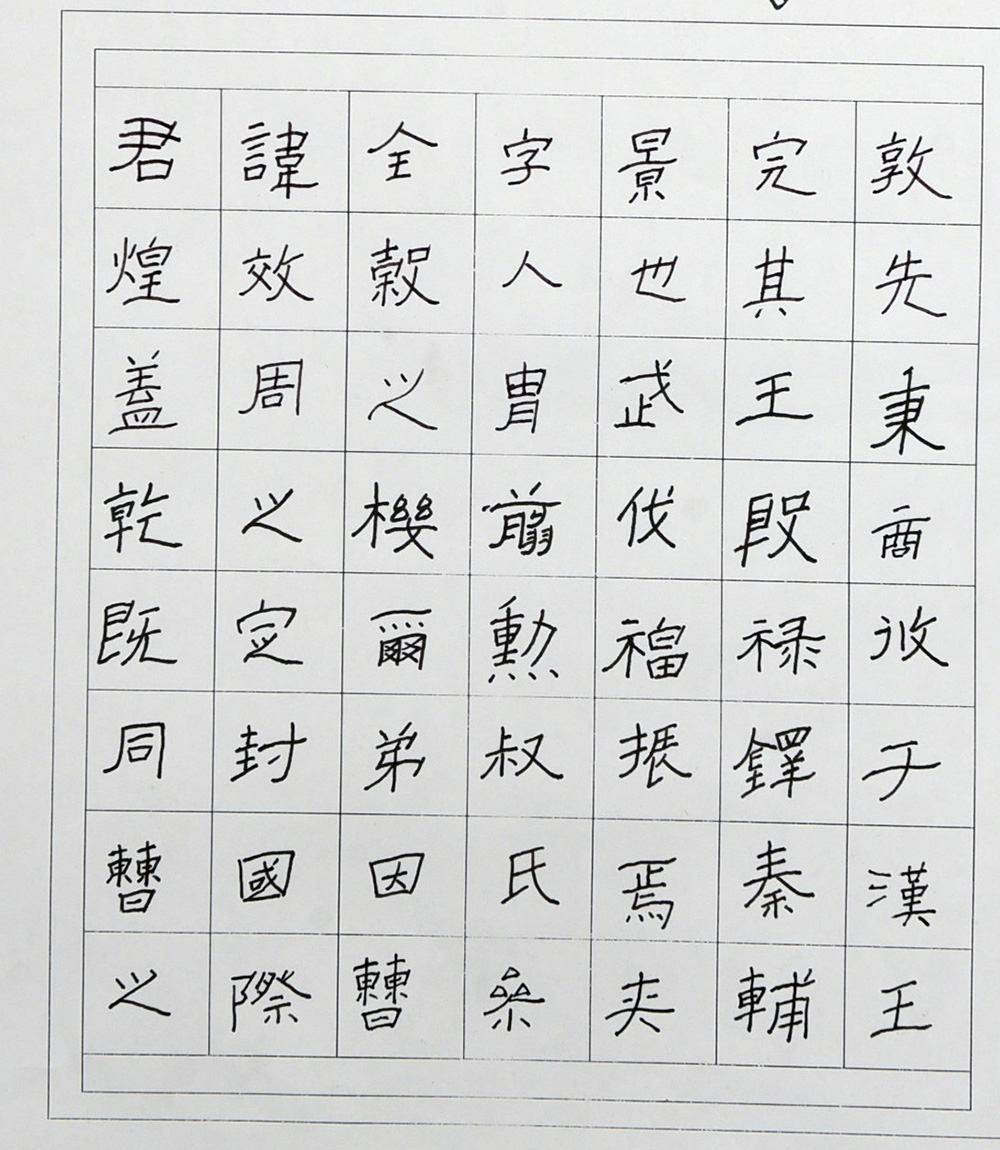 君諱全字景完敦
煌效穀人也其先
蓋周之胄武王秉
乾之機翦伐殷商
既定爾勳福禄攸
同封弟叔振鐸于
曹國因氏焉秦漢
之際曹參夾輔王